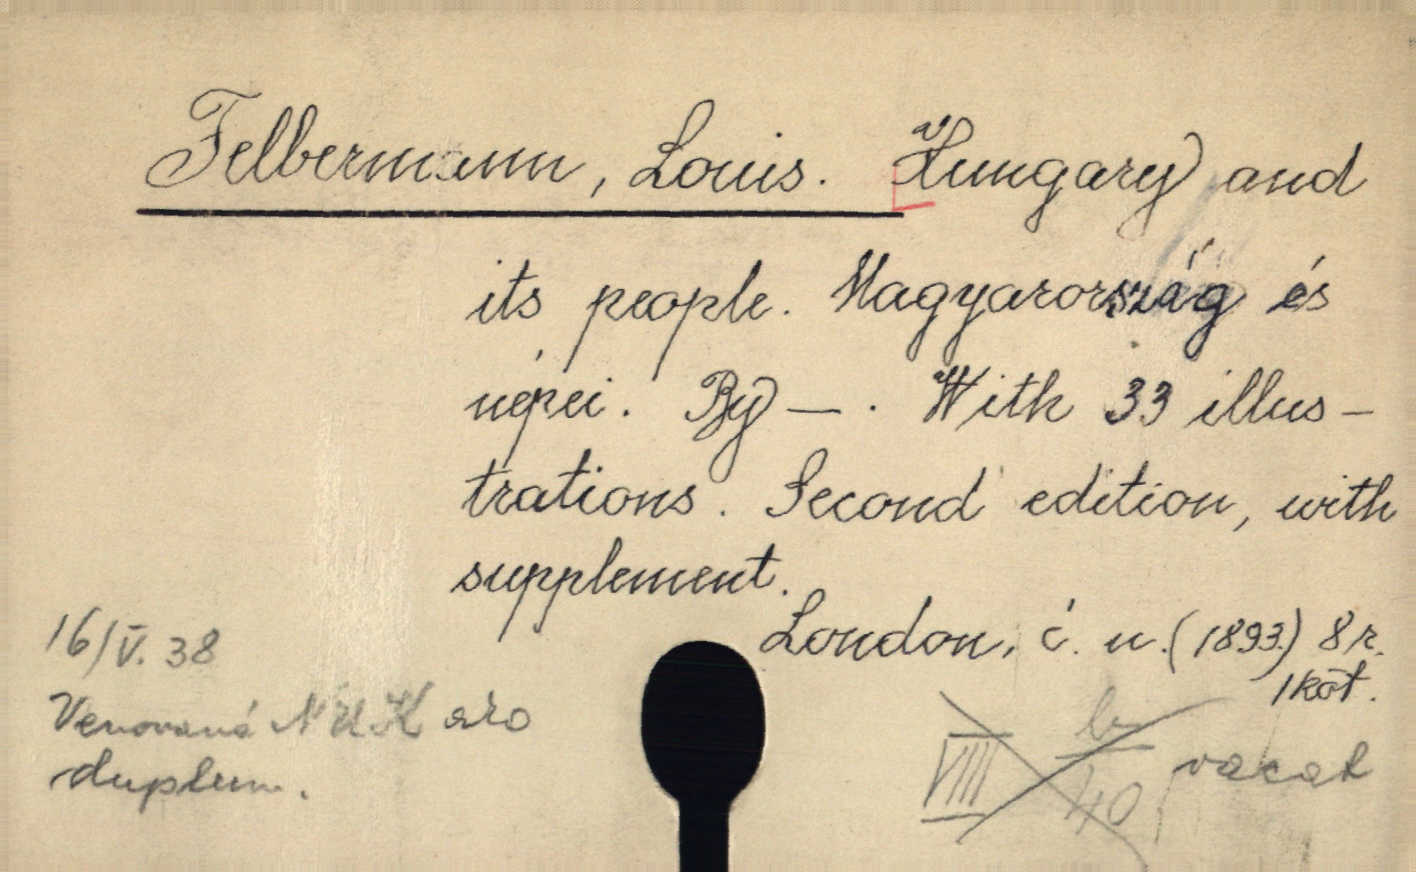 Felbermann, Louis. Hungary and
its people. Magyarország és
népei. By — . With 33 illus-
trations. Second edition, with
supplement.
London, é. n. (1893.) 8 r.
1 köt.
16/V. 38
Venovaná NUK ako
duplum.
VIII b/40 vacat